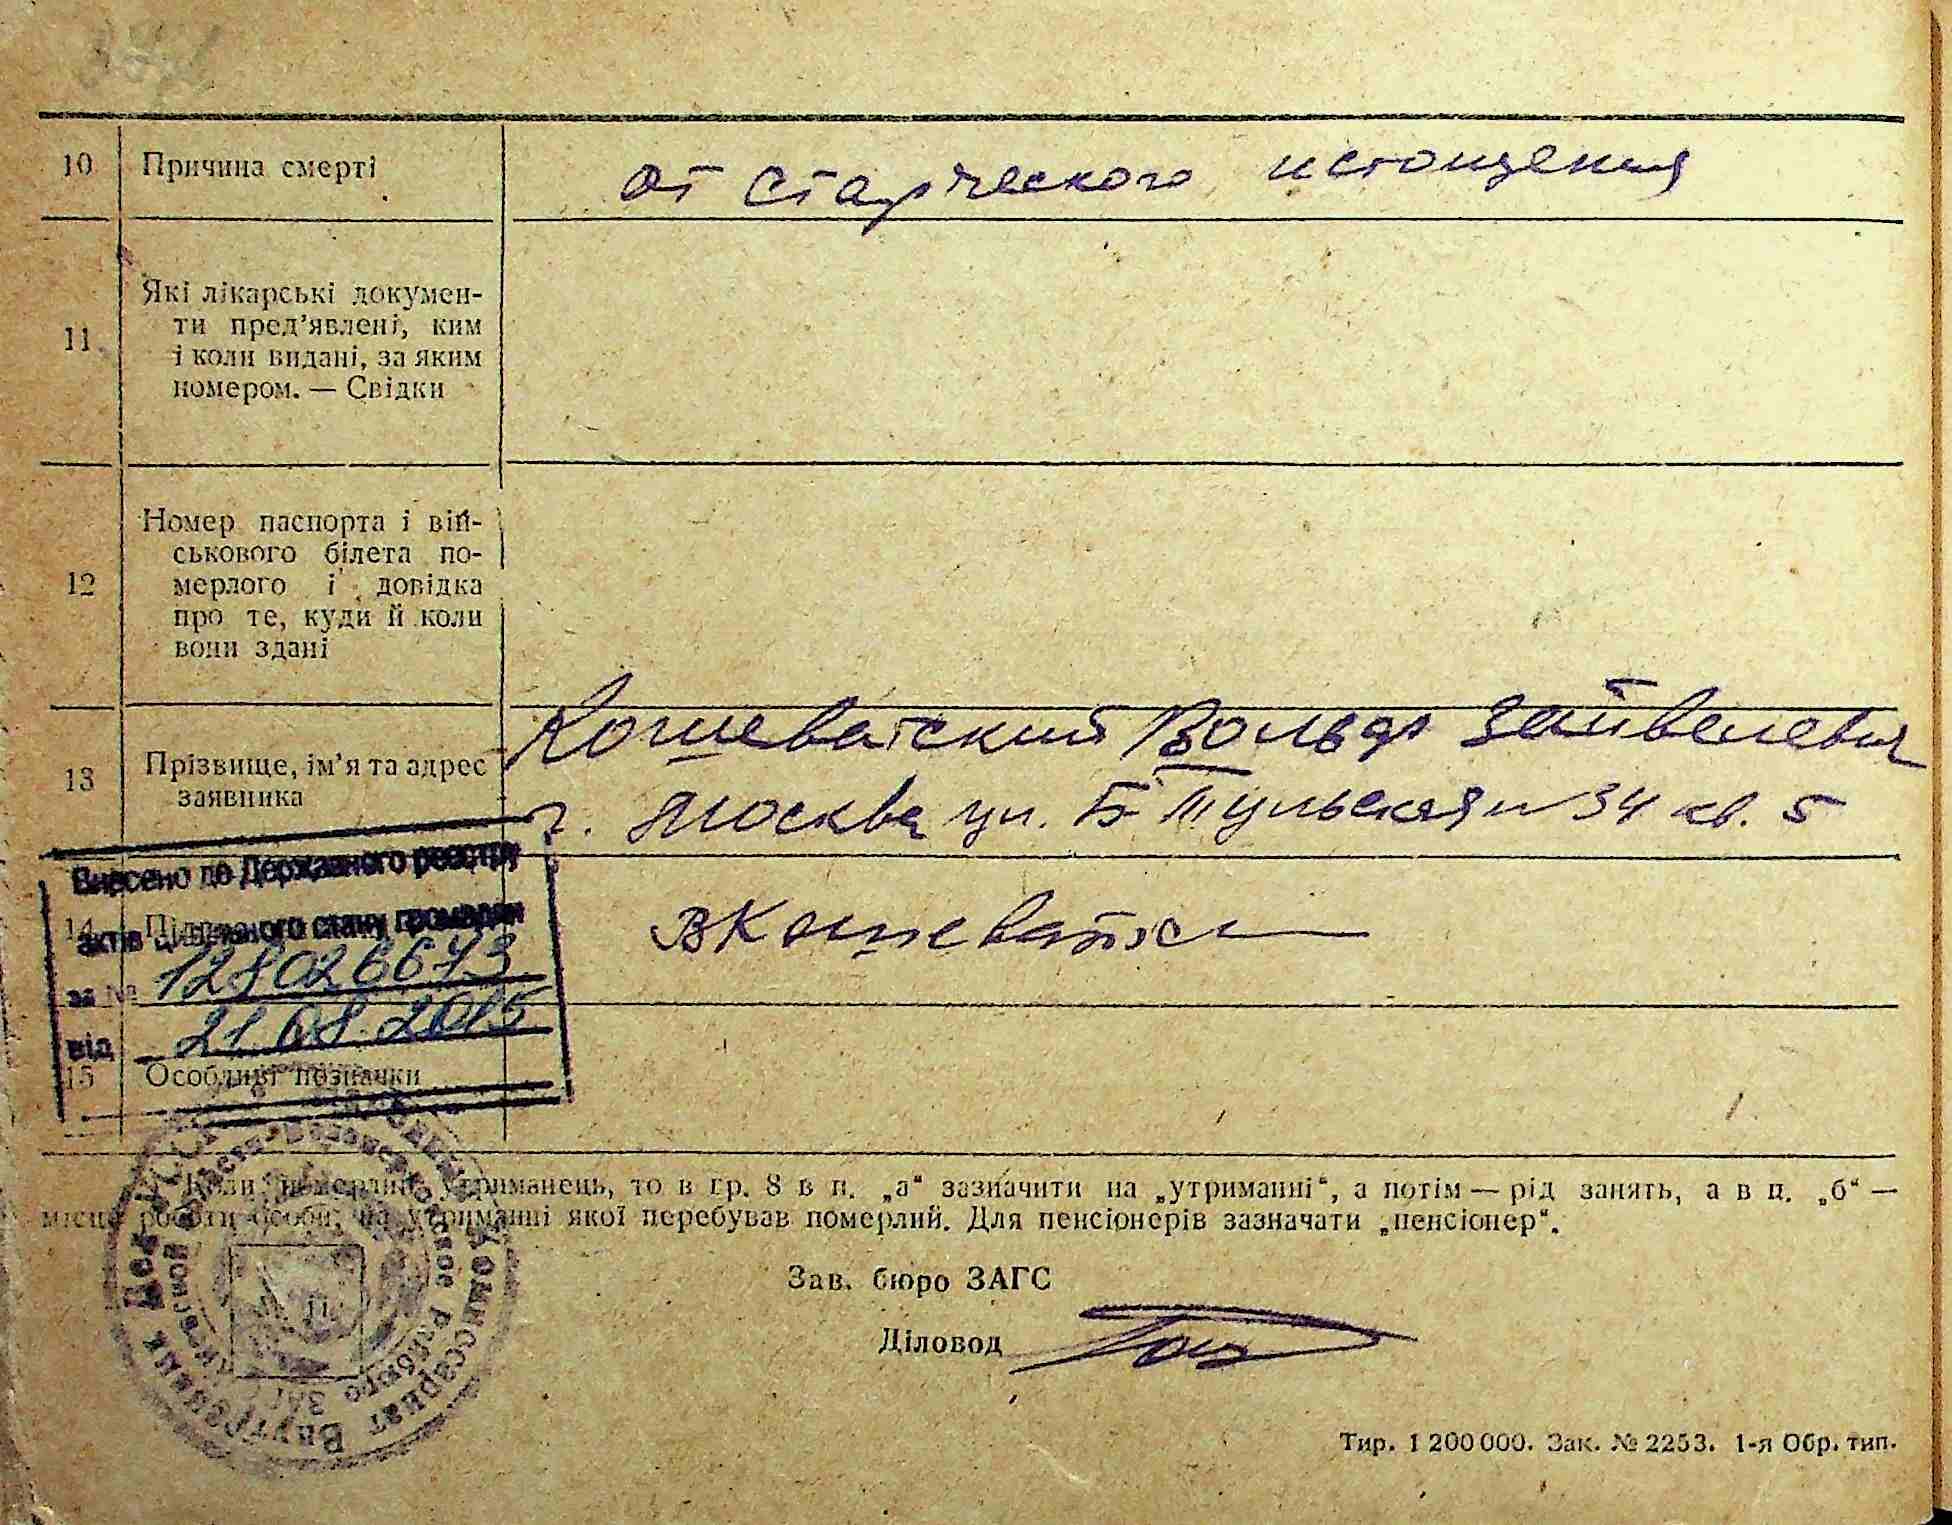 10 Причина смерті от старческого истощения
11 Які лікарські докумен-
ти пред'явлені, ким
і коли видані, за яким
номером. — Свідки
12 Номер паспорта і вій-
ськового білета по-
мерлого і довідка
про те, куди й коли
вони здані
Кошеватский Вольф Зайвелевич
13 Прізвище, ім'я та адрес
заявника
г. Москва ул. Б Тульская 34 кв. 5
Внесено до Державного реєстру
актів цивільного стану громадян
14
за № 128026673
від 21.08.2015
15 Особливі позначки
Коли померлий утриманець, то в гр. 8 в п. „а“ зазначити на „утриманні“, а потім — рід занять, а в п. „б“ —
місце роботи особи, на утриманні якої перебував померлий. Для пенсіонерів зазначати „пенсіонер“.
Зав. бюро ЗАГС
Діловод
Тир. 1 200 000. Зак. № 2253. 1-я Обр. тип.